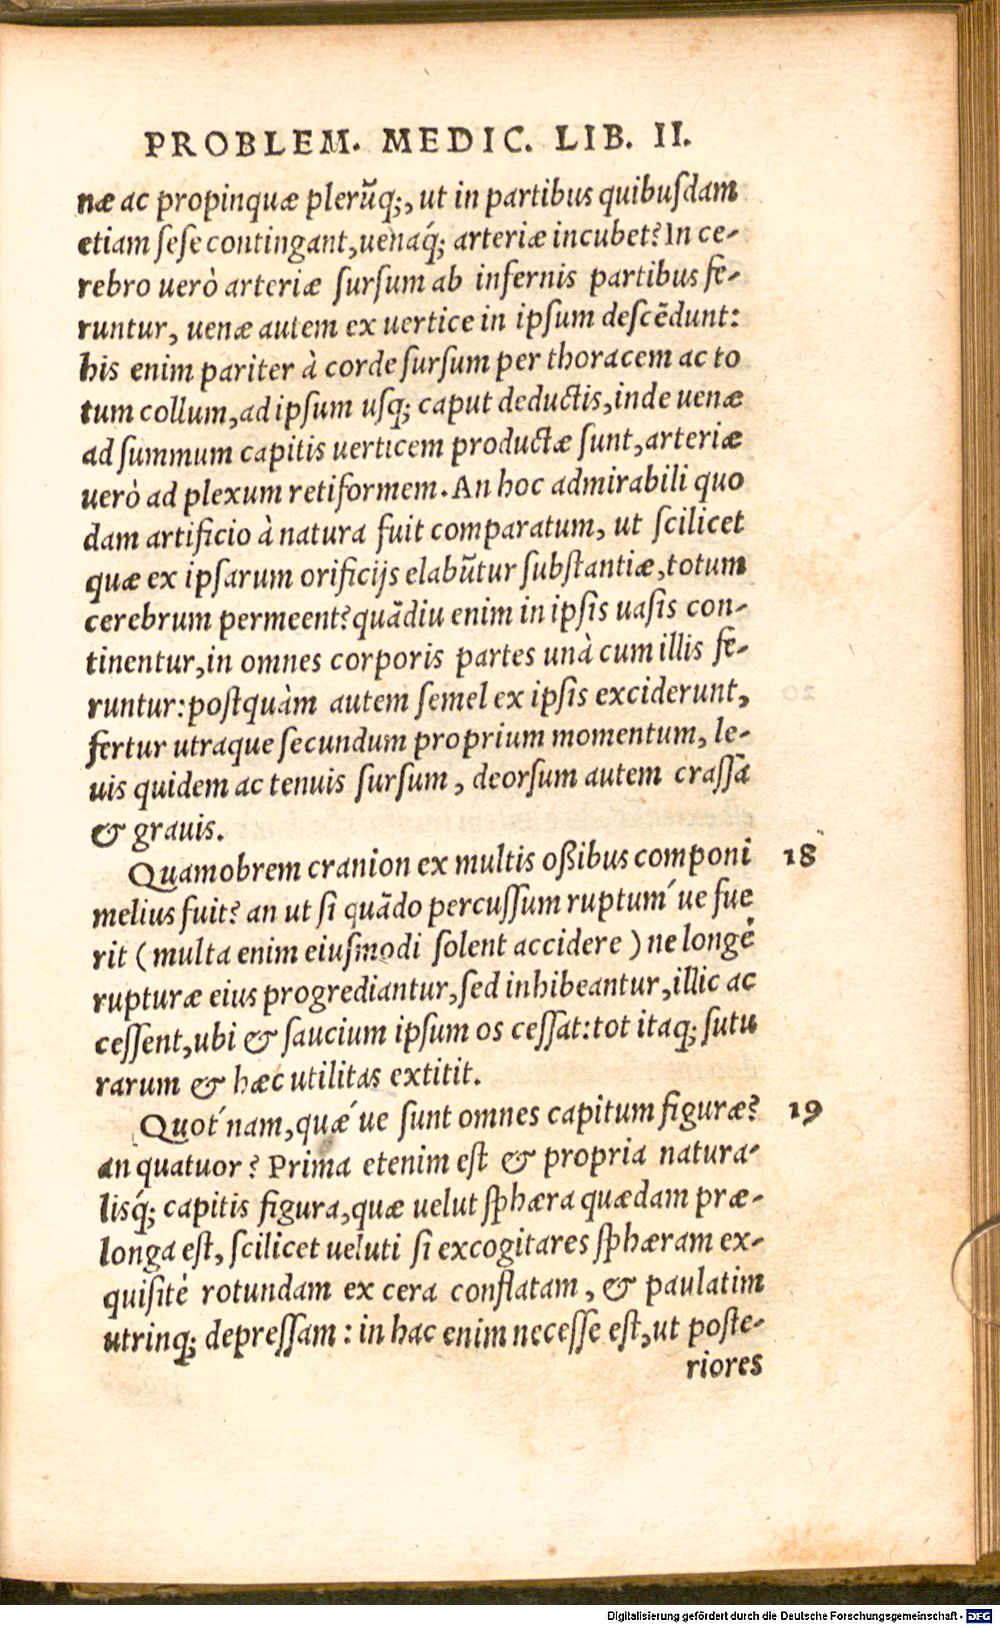 PROBLEM. MEDIC. LIB. II.
næ ac propinquæ plerũq;, ut in partibus quibusdam
etiam sese contingant, uenaq́; arteriæ incubet? In ce-
rebro uerò arteriæ sursum ab infernis partibus fe-
runtur, uenæ autem ex uertice in ipsum descẽdunt:
his enim pariter à corde sursum per thoracem ac to
tum collum, ad ipsum usq; caput deductis, inde uenæ
ad summum capitis uerticem productæ sunt, arteriæ
uerò ad plexum retiformem. An hoc admirabili quo
dam artificio à natura fuit comparatum, ut scilicet
quæ ex ipsarum orificijs elabũtur substantiæ, totum
cerebrum permeent? quãdiu enim in ipsis uasis con-
tinentur, in omnes corporis partes unà cum illis fe-
runtur: postquàm autem semel ex ipsis exciderunt,
fertur utraque secundum proprium momentum, le-
uis quidem ac tenuis sursum, deorsum autem crassa
& grauis.
Quamobrem cranion ex multis oßibus componi 18
melius fuit? an ut si quãdo percussum ruptum´ ue fue
rit (multa enim eiusmodi solent accidere) ne longè
rupturæ eius progrediantur, sed inhibeantur, illic ac
cessent, ubi & saucium ipsum os cessat: tot itaq; sutu
rarum & hæc utilitas extitit.
Quot´ nam, quæ´ ue sunt omnes capitum figuræ? 19
an quatuor? Prima etenim est & propria natura-
lisq́; capitis figura, quæ uelut sphæra quædam præ-
longa est, scilicet ueluti si excogitares sphæram ex-
quisitè rotundam ex cera conflatam, & paulatim
utrinq; depressam: in hac enim necesse est, ut poste-
riores
Digitalisierung gefördert durch die Deutsche Forschungsgemeinschaft - DFG